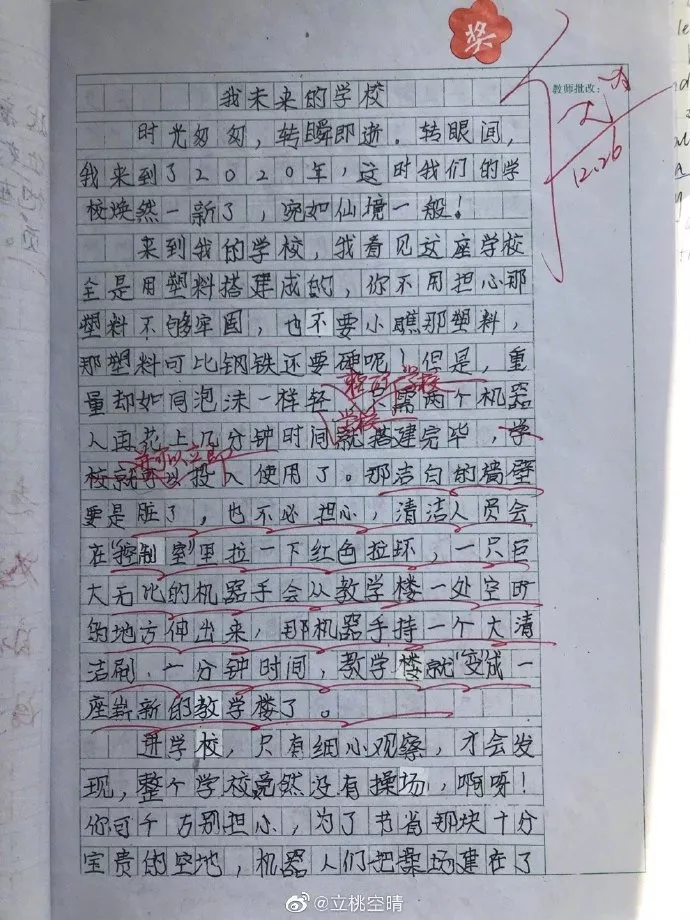 奖
教师批改：
12.26
我未来的学校
时光匆匆，转瞬即逝．转眼间，
我来到了2020年，这时我们的学
校焕然一新了，宛如仙境一般！
来到我的学校，我看见这座学校
全是用塑料搭建成的，你不用担心那
塑料不够牢固，也不要小瞧那塑料，
那塑料可比钢铁还要硬呢！但是，重
量却如同泡沫一样轻 需两个机器
人再花上几分钟时间就搭建完毕，学
校就可以投入使用了。那洁白的墙壁
要是脏了，也不必担心，清洁人员会
在“控制室”里拉一下红色拉环，一只巨
大无比的机器手会从教学楼一处空旷
的地方伸出来，那机器手持一个大清
洁刷．一分钟时间，教学楼就“变”成一
座崭新的教学楼了。
进学校，只有细心观察，才会发
现，整个学校竟然没有操场，啊呀！
你可千万别担心，为了节省那块十分
宝贵的空地，机器人们把操场建在了
@立桃空晴